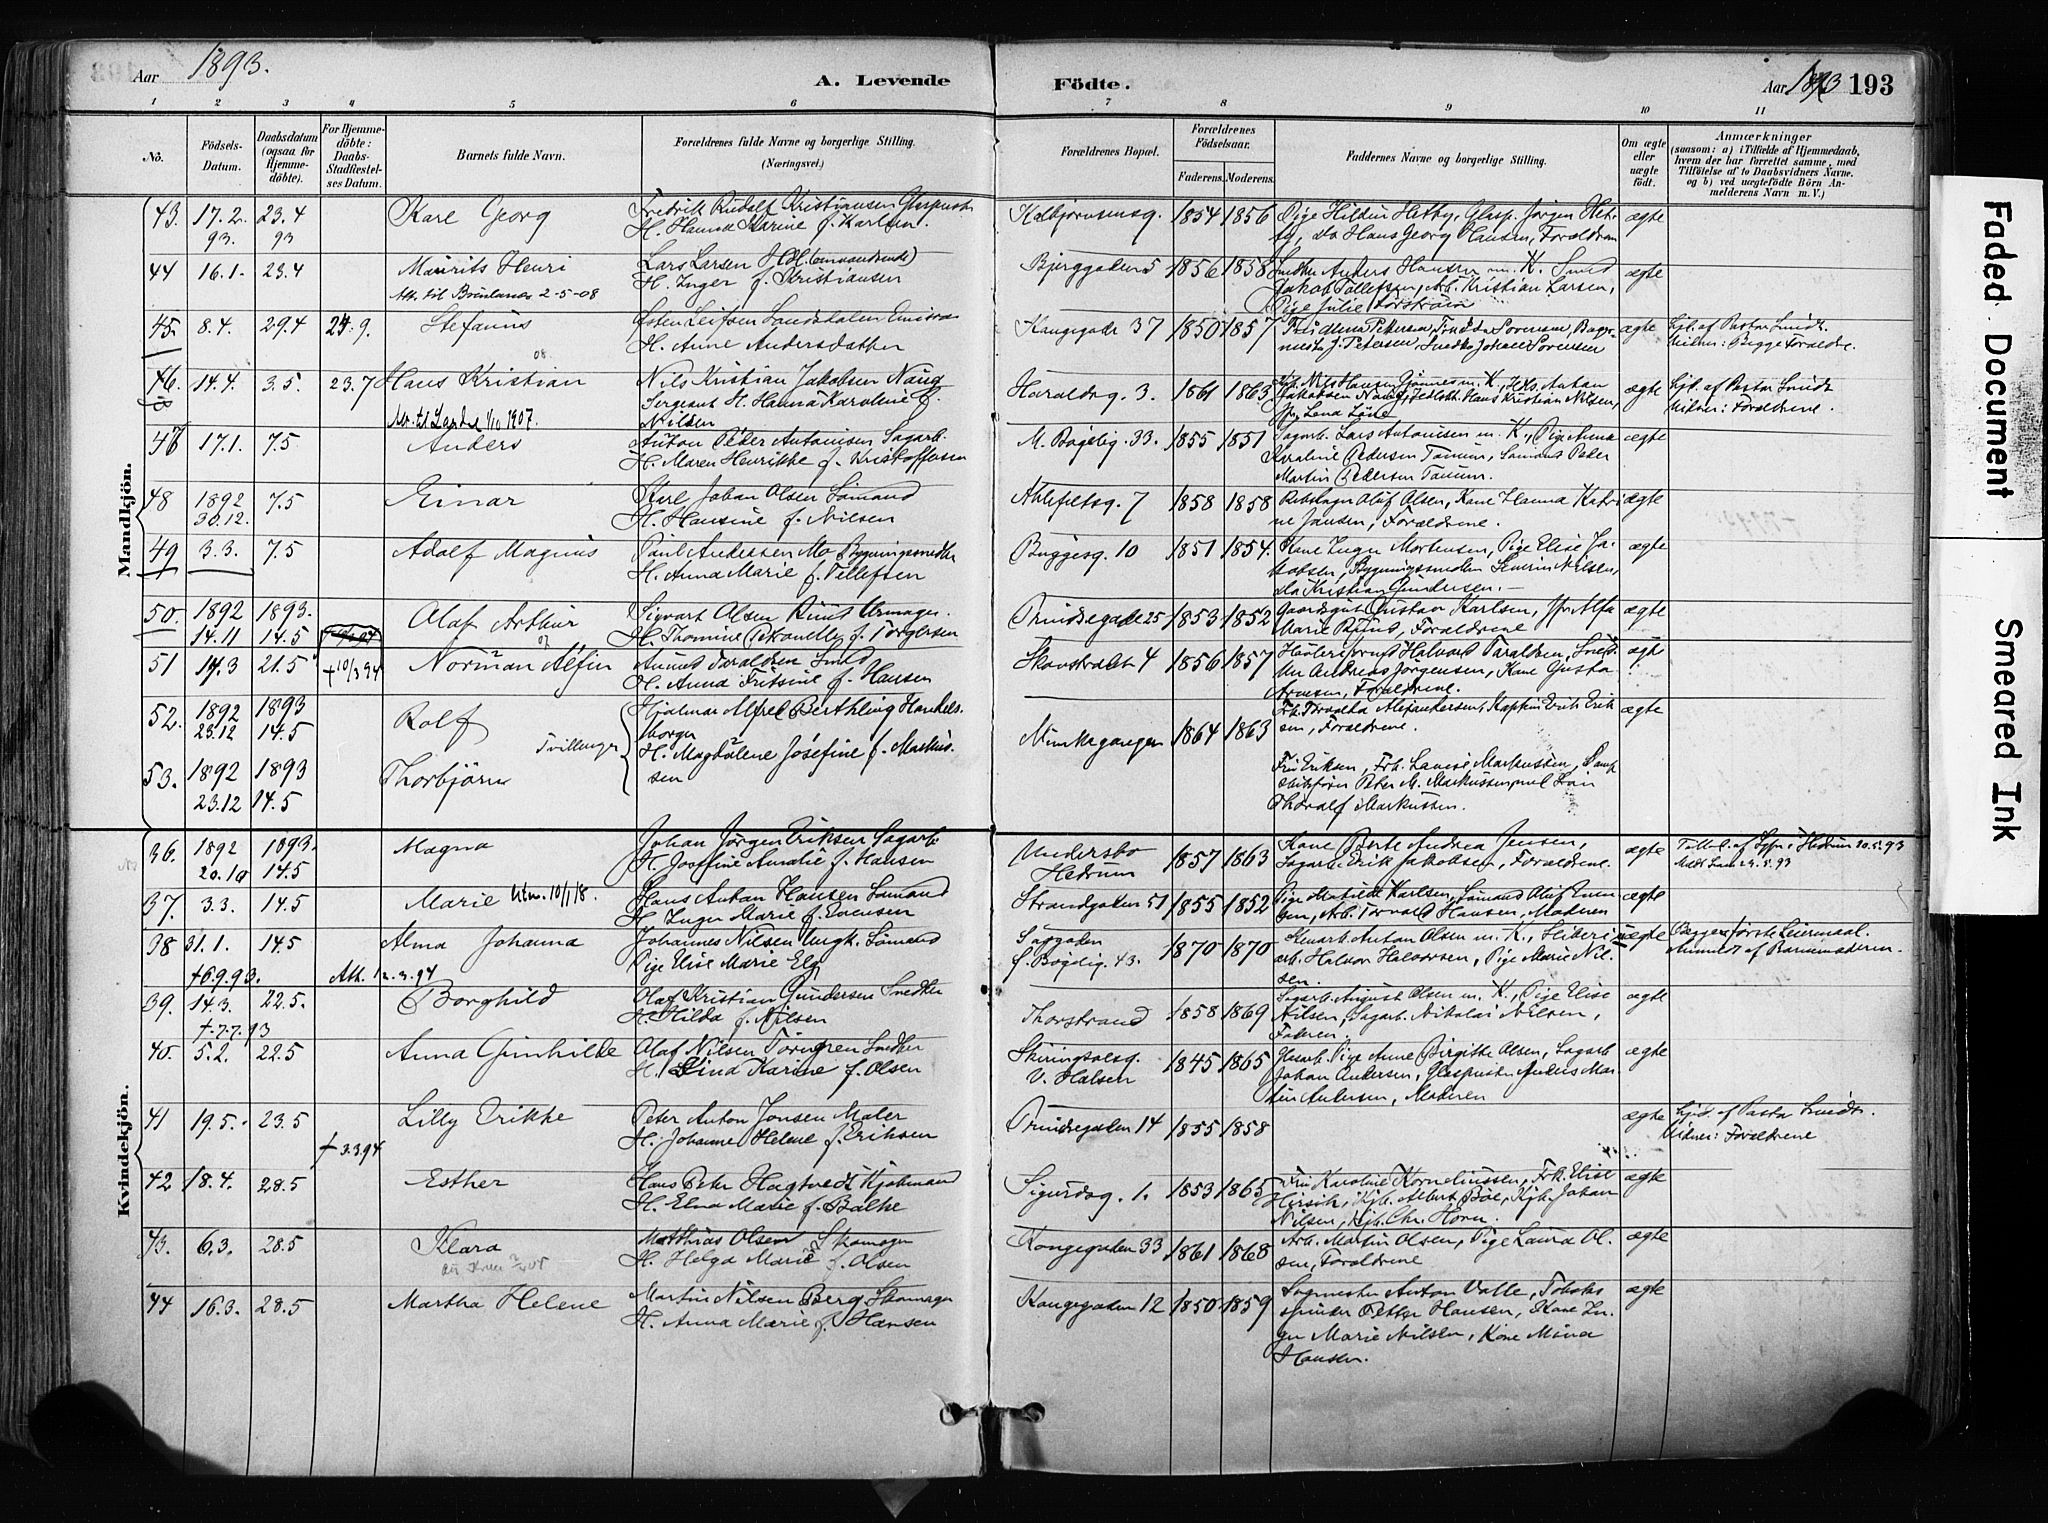 Aar 1893.
A. Levende
Födte.
Aar 1893
193
1 2 3 4 5 6 7 8 9 10 11
No.
Födsels-
Datum.
Daabsdatum
(ogsaa for
Hjemme-
döbte).
For Hjemme-
döbte:
Daabs-
Stadfæstel-
ses Datum.
Barnets fulde Navn.
Forældrenes fulde Navne og borgerlige Stilling.
(Næringsvei.)
Forældrenes Bopæl.
Forældrenes
Födselsaar.
Faderens. Moderens.
Faddernes Navne og borgerlige Stilling.
Om ægte
eller
uægte
födt.
Anmærkninger
(saasom: a) i Tilfælde af Hjemmedaab,
hvem der har forrettet samme, med
Tilföielse af to Daabsvidners Navne.
og b) ved uægtefödte Börn An-
melderens Navn m. V.)
Mandkjön.
43. 17.2. 93. 23.4 93 Karl Georg
Fredrik Rudolf Kristiansen Glaspuster
H. Hanna Karine f. Karlsen.
Kolbjørnsensg. 1854 1856
Hetby, Glasp. Jørgen Het-
by, do Hans Georg Hansen, Forældrene
ægte
44 16.1. 23.4 Maurits Henri
Att. til Brunlanes 2-5-08
Lars Larsen
H. Inger f. Kristiansen
Bjerggaden 5 1856 1858
Snedker Anders Hansen m. K.
Jakob Tollefsen, Arb. Kristian Larsen,
Pige Julie
ægte
45. 8.4. 29.4 24.9. Stefanus
Østen Leifsen Landsdalen Emissær
H. Anne Andersdatter
Kongegade 37 1850 1857
J. Petersen, Snedker Johan Sørensen
ægte
Hjd. af Pastor Smidt.
Vidner: Begge Forældre.
46. 14.4. 3.5. 23.7 Hans Kristian
Att. til Larvik 1/10 1907.
Nils Kristian Jakobsen Naug
Sergeant H. Hanna Karoline f.
Nilsen
Haraldsg. 3. 1861 1863
Nils Hansen Gjønnes m. K,
Hans Kristian Nilsen,
ægte
Hjd. af Pastor Smidt
Vidner: Forældrene.
47 17.1. 7.5 Anders
Anton Peder Antonisen Sagarb.
H. Maren Henrikke f. Kristoffersen
M. Bøgelig. 33. 1855 1851
Sagarb. Lars Antonisen m. K., Pige Anna
Karoline Pedersen Tanum, Sømand Peder
Martin Pedersen Tanum.
ægte
48 1892 30.12. 7.5 Einar
Karl Johan Olsen Sømand
H. Hansine f. Nilsen
Ahlefeltsg. 7 1858 1858
Oluf Olsen, Kone Hanna Katri-
ne Jansen, Forældrene.
ægte
49 3.3. 7.5 Adolf Magnus
Paul Andersen Mo Bygningssnedker
H. Anna Marie f. Tellefsen
Buggesg. 10 1851 1854.
Kone Inger Mortensen, Pige Elise Ja-
kobsen, Bygningssnedker Severin Nilsen,
do Kristian Gundersen.
ægte
50. 1892 14.11 1893. 14.5 Olaf Arthur
Sigvart Olsen Ruud Urmager.
H. Thomine Petronelle f. Torgersen
Prindsegade 25 1853 1852
Gaardsgut Gustav Karlsen,
Marie Ruud, Forældrene
ægte
51 14.3 21.5 +10/3 94 Norman Alfin
H. Anna Fritsine f. Hansen
4 1856 1857
Halvard Taraldsen,
Andreas Jørgensen, Kone Gusta
Arnesen, Forældrene.
ægte
52. 1892 23.12 1893 14.5 Rolf
Tvillinger
Hjalmar Alfred Berthling Handels-
borger
H. Magdalene Josefine f. Markus-
sen
Munkegangen 1864 1863
Frk. Torvalda Alexandersen, Kaptein Erik Erik-
sen, Forældrene.
ægte
53. 1892 23.12 1893 14.5 Thorbjørn
Fru Eriksen, Frk. Lovise Markussen,
Peter M. Markussen,
Thoralf Markussen.
Kvindekjön.
36. 1892 20.10 1893. 14.5 Magna
Johan Jørgen Eriksen Sagarb
H. Josefine Amalie f. Hansen
Undersbo
Hedrum
1857 1863
Kone Berte Andrea Jensen,
Sagarb. Erik Jakobsen, Forældrene.
ægte
Hedrum 20.5.93
37. 3.3. 14.5 Marie Utm. 10/1 18.
Hans Anton Hansen Sømand
H. Inger Marie f. Evensen
Strandgaden 51 1855 1852
Pige Matilde Karlsen, Sømand Oluf Even-
sen, Arb. Torvald Hansen, Moderen
ægte
38 31.1. 14.5 Alma Johanna
+6.9.93. Att. 12.3.94
Johannes Nilsen Ungk. Sømand
Pige Elise Marie Elg
Saggaden
f. Bøgelig. 43.
1870 1870
Stenarb. Anton Olsen m. K., Sliberi-
arb. Halvor Halvorsen, Pige Marie Nil-
sen.
uægte
Begges første Leiermaal.
Anmeldt af Barnemoderen.
39. 14.3. 22.5. Borghild
+7.7.93
Olaf Kristian Gundersen Snedker
H. Hilda f. Nilsen
Thorstrand 1858 1869
Sagarb. August Olsen m. K., Pige Elise
Nilsen, Sagarb. Nikolai Nilsen,
Faderen.
ægte
40. 5.2. 22.5 Anna Gunhilde
Olaf Nilsen Tørngren Snedker
H. Lina Karine f. Olsen
Skiringsalsg.
V. Halsen
1845 1865
Glasarb. Pige Anne Birgitte Olsen, Sagarb
Johan Andersen, Glaspuster Anders Mar-
tin Andersen, Moderen
ægte
41 19.5. 23.5 Lilly Erikke
+ 3.3.94
Peter Anton Jonsen Maler
H. Johanne Helene f. Eriksen
Prindsegaden 14 1855 1858
ægte
Hjd. af Pastor Smidt.
Vidner: Forældrene
42 18.4. 28.5 Esther
Hans Peter Hagtvedt Kjøbmand
H. Elna Marie f. Balke
Sigurdsg. 1. 1853 1865
Fru Karoline Korneliussen, Frk. Elise
Hirsch, Kjb. Albert Bøe, Kjb. Johan
Nilsen, Kjb. Chr. Horn.
ægte
43. 6.3. 28.5 Klara
Matthias Olsen Skomager
H. Helga Marie f. Olsen
Kongegaden 33 1861 1868
Arb. Martin Olsen, Pige Laura Ol-
sen, Forældrene
ægte
44 16.3. 28.5 Martha Helene
Martin Nilsen Berg Skomager
H. Anna Marie f. Hansen
Kongegaden 12 1850 1859
Sagmester Anton Valle, Tobaks-
spinder Petter Hansen, Kone In-
ger Marie Nilsen, Kone Mina
Hansen.
ægte
Faded Document
Smeared Ink